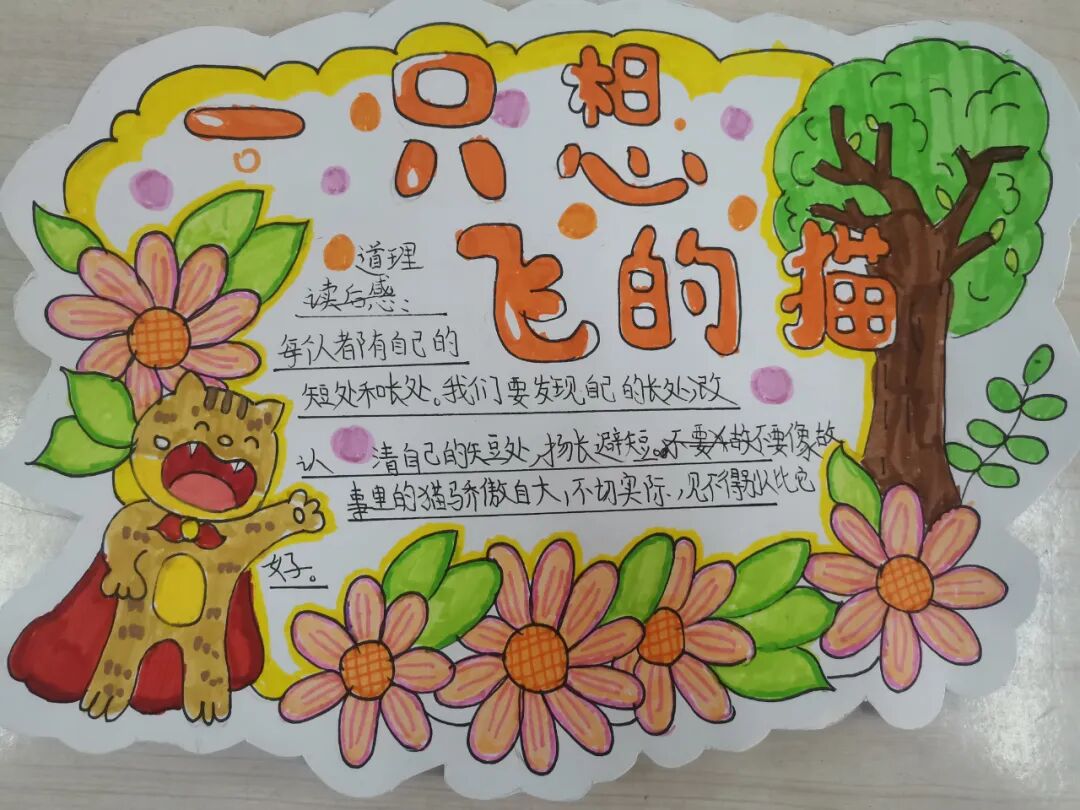 一只想
飞的猫
道理
读后感：
每个人都有自己的
短处和长处。我们要发现自己的长处改
认清自己的短处，扬长避短。不要像故
事里的猫骄傲自大，不切实际，见不得别人比它
好。